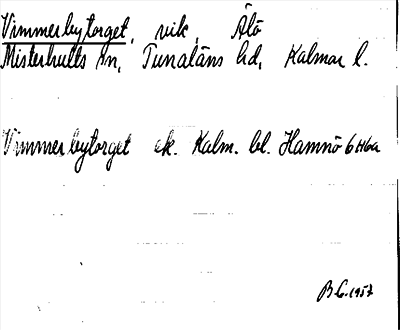 Vimmerbytorget, vik, Älö
Misterhults sn, Tunaläns hd, Kalmar l.
Vimmerbytorget ek. Kalm. bl. Hamnö 6H6a
B.G. 1957